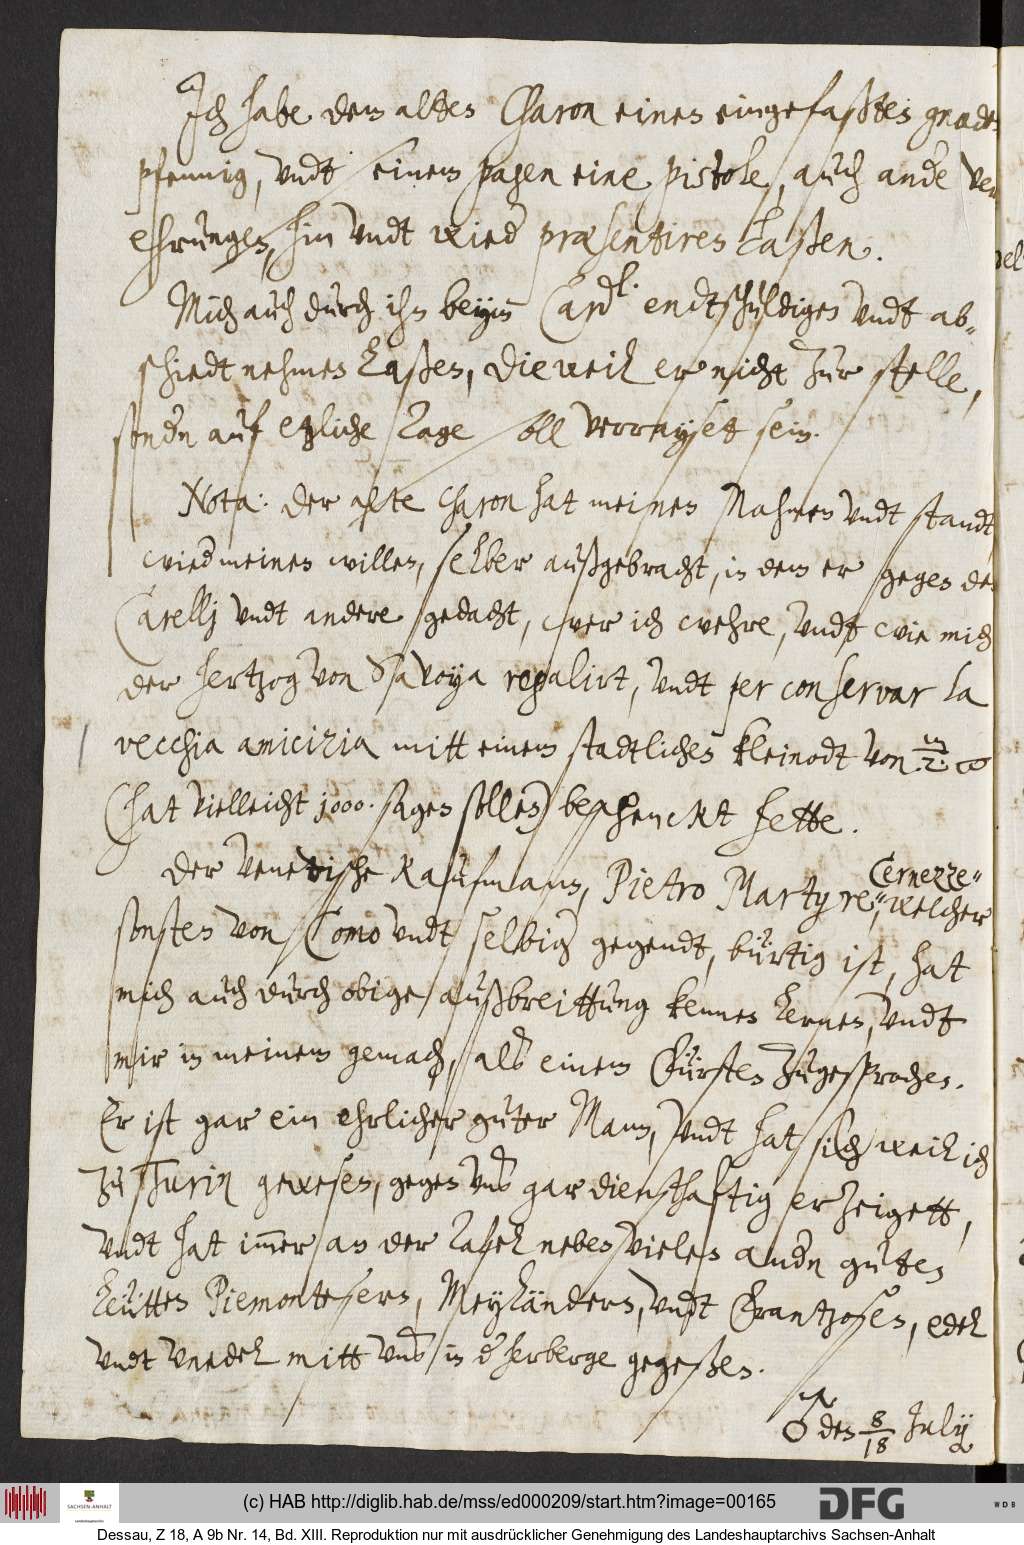 Ich habe dem alten Charon einen eingefaßten gnade
pfennig, vndt einem pagen eine pistole, auch ande ver
ehrungen, hin vndt wied præsentiren laßen.
Mich auch durch ihn beym Cardl. endtschuldigen vndt ab-
schiedt nehmen laßen, dieweil er nicht zur stelle,
sondn auf etzliche Tage soll verrayset sein.
Nota: der alte Charon hat meinen Nahmen vndt standt,
wied meinen willen, selber außgebracht, in dem er gegen de
Carellj vndt andere gedacht, wer ich wehre, vndt wie mich
der hertzog von Savoya regalirt, vndt per conservar la
vecchia amicizia mitt einem stadtlichen kleinodt von m/2.
(hat vielleicht 1000. sagen sollen) beschenckt hette.
Der Venetische Kaufmann, Pietro Martyre, Cernezze" welcher
sonsten von Como vndt selbig gegendt, bürtig ist, hat
mich auch durch obige außbreittung kennen lernen, vndt
mir in meinem gemach, als einem Fürsten zugesprochen.
Er ist gar ein ehrlicher guter Mann, vndt hat sich weil ich
zu Turin gewesen, gegen vns gar diensthaftig erzeigett,
vndt hat immer an der Tafel neben vielen andn guten
leütten Piemontesern, Meyländern, vndt Frantzosen, edel
vndt vnedel mitt vns in d herberge gegeßen.
den 8/18 July
(c) HAB http://diglib.hab.de/mss/ed000209/start.htm?image=00165
SACHSEN-ANHALT
DFG
WDB
Dessau, Z 18, A 9b Nr. 14, Bd. XIII. Reproduktion nur mit ausdrücklicher Genehmigung des Landeshauptarchivs Sachsen-Anhalt